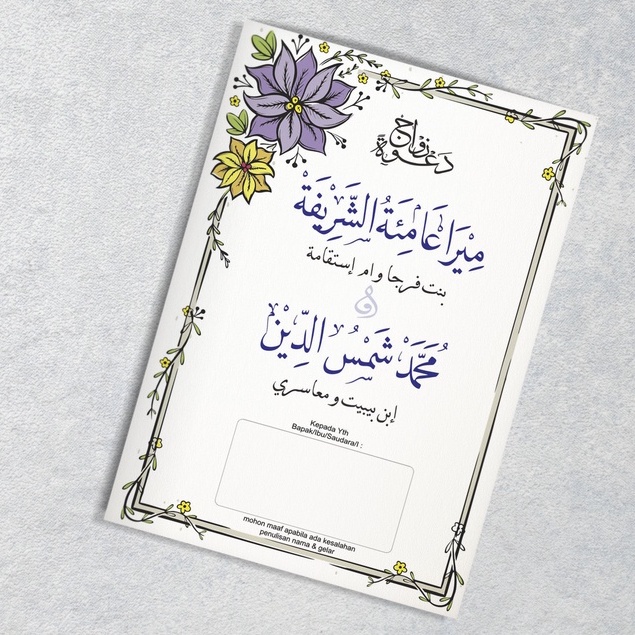 دعوة زواج
مِيرَا عَامِئَةُ الشَّرِيفَة
بنت فرجا و ام إستقامة
و
مُحَمَّدْ شَمْسُ الدِّيْن
إبن بيبيت و معاسري
Kepada Yth
Bapak/Ibu/Saudara/I :
mohon maaf apabila ada kesalahan
penulisan nama & gelar